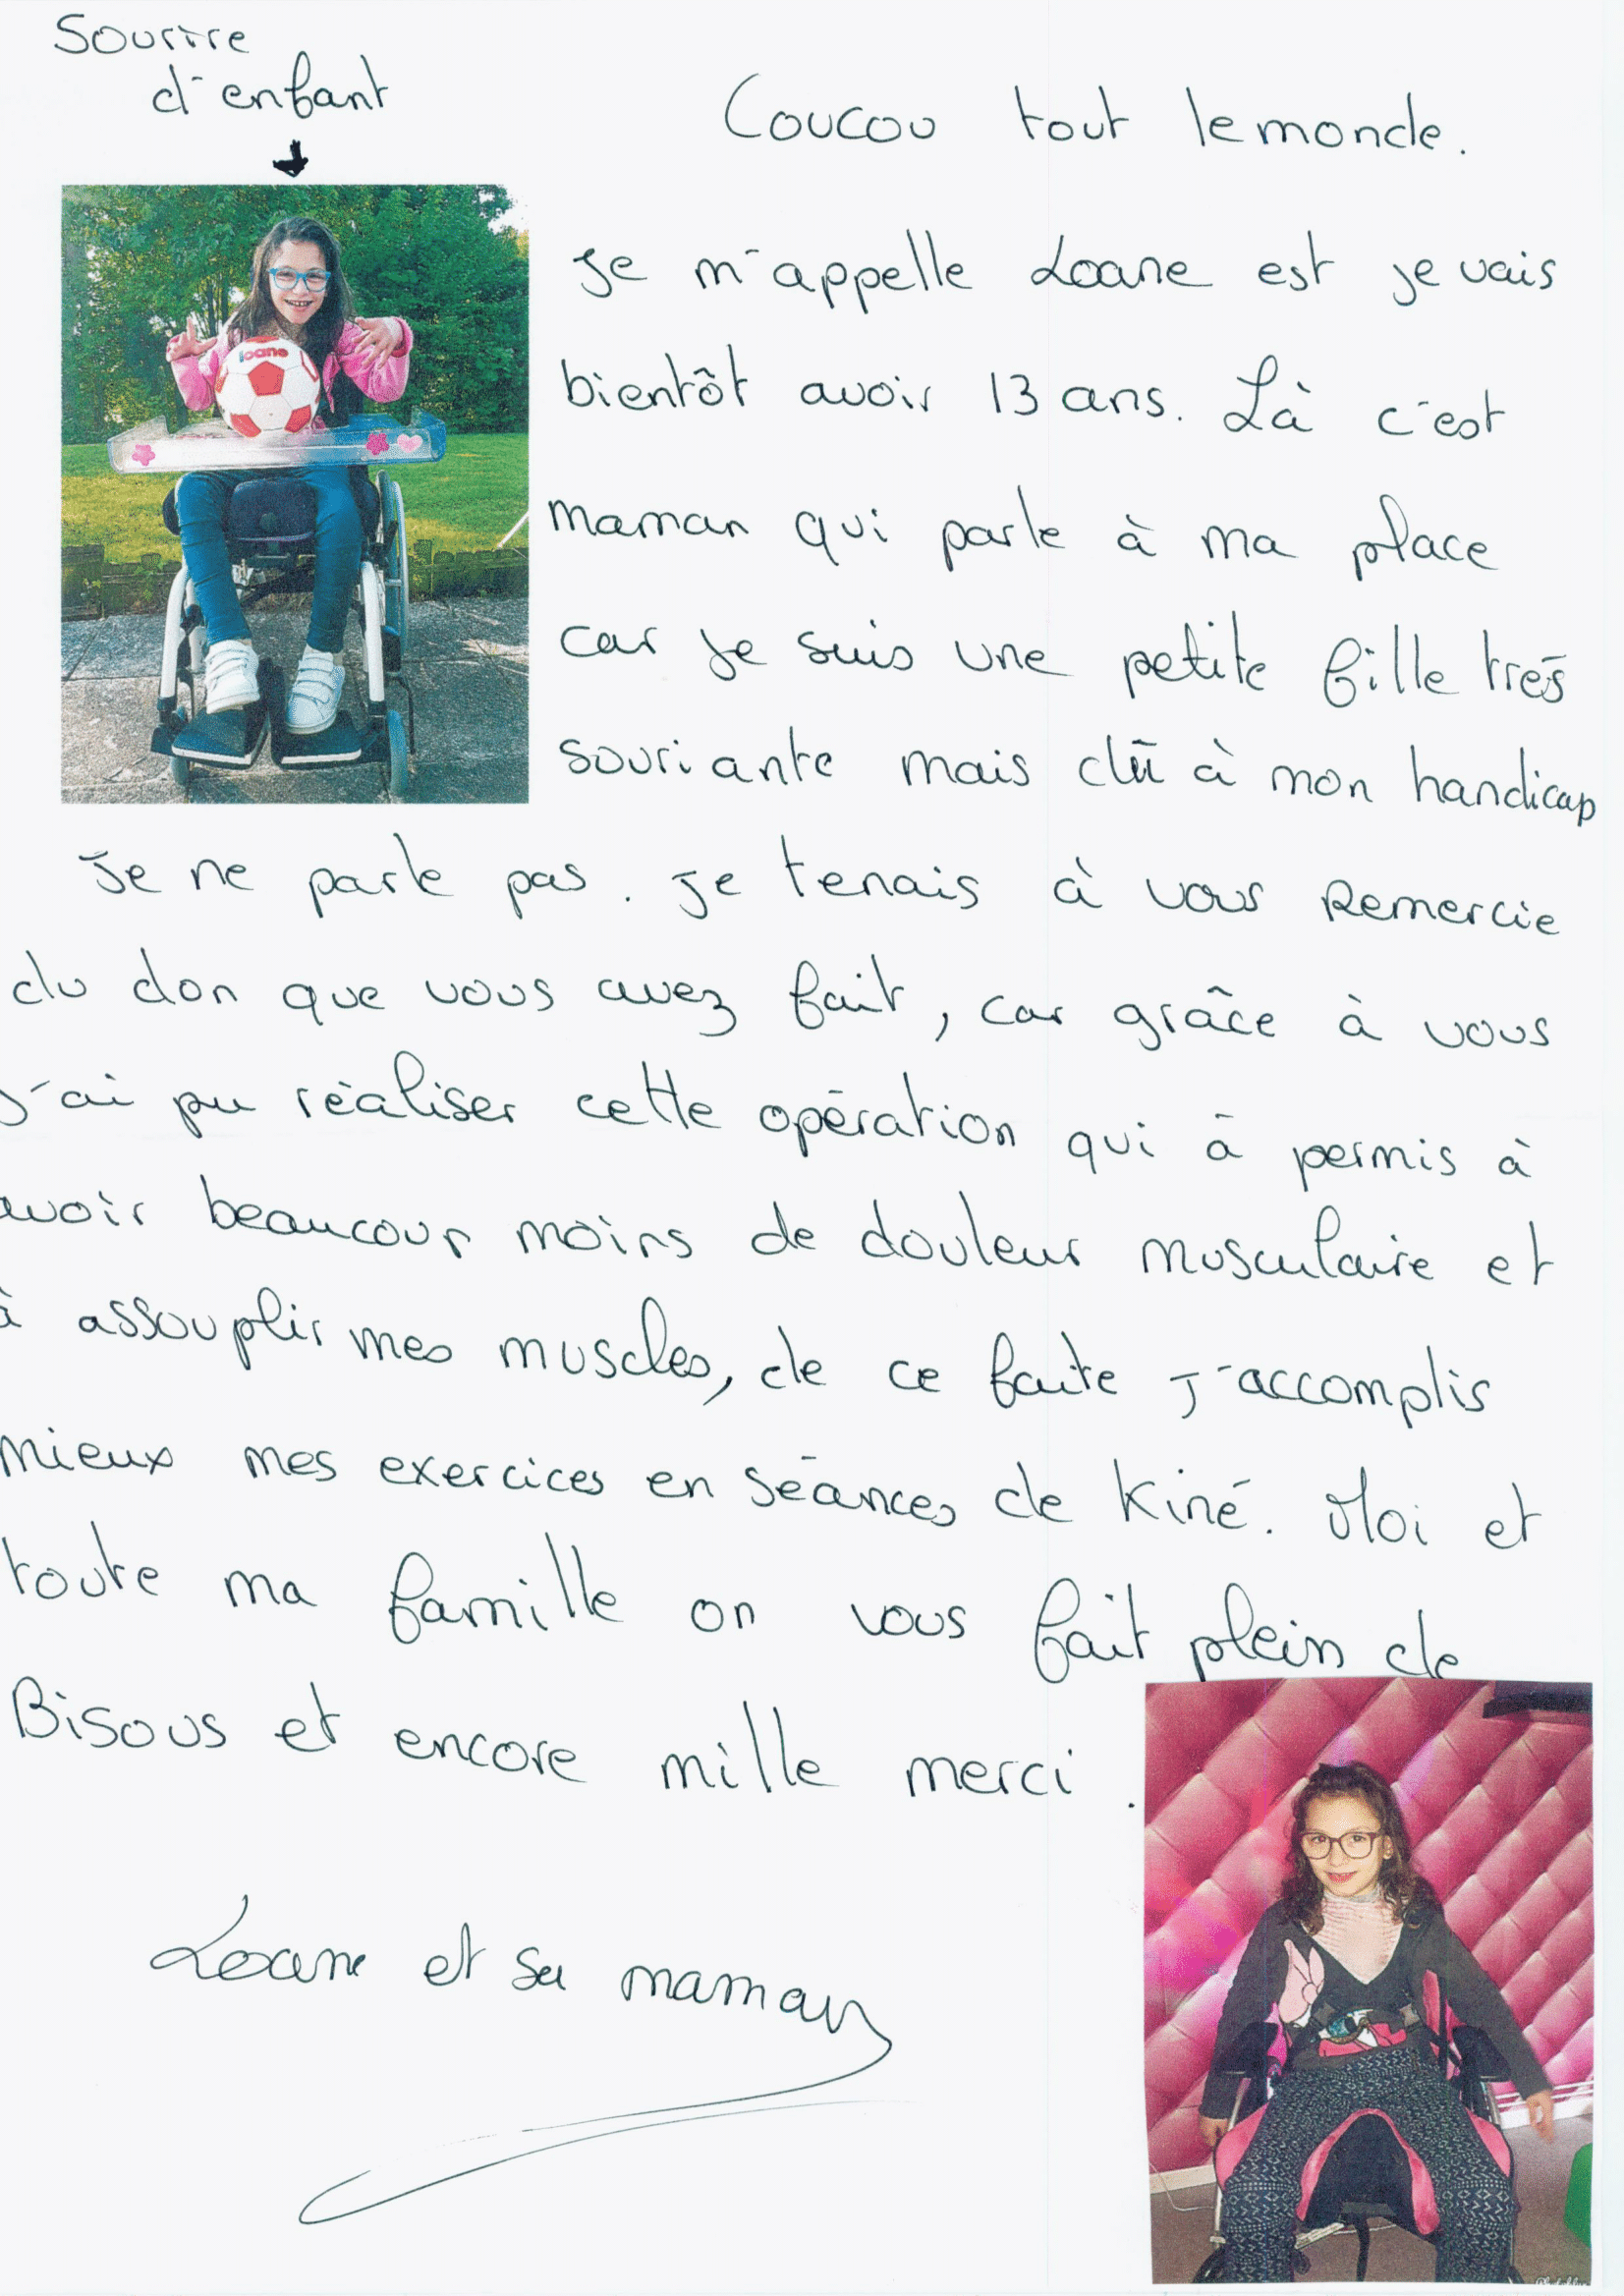 Sourire
d'enfant
Coucou tout le monde.
loane
Je m'appelle Loane est je vais
bientôt avoir 13 ans. Là c'est
maman qui parle à ma place
car je suis une petite fille très
souriante mais dû à mon handicap
Je ne parle pas. Je tenais à vous Remercie
du don que vous avez fait, car grâce à vous
J'ai pu réaliser cette opération qui à permis à
avoir beaucoup moins de douleur musculaire et
à assouplir mes muscles, de ce faite J'accomplis
mieux mes exercices en séances de Kiné. Moi et
toute ma famille on vous fait plein de
Bisous et encore mille merci.
Loane et sa maman